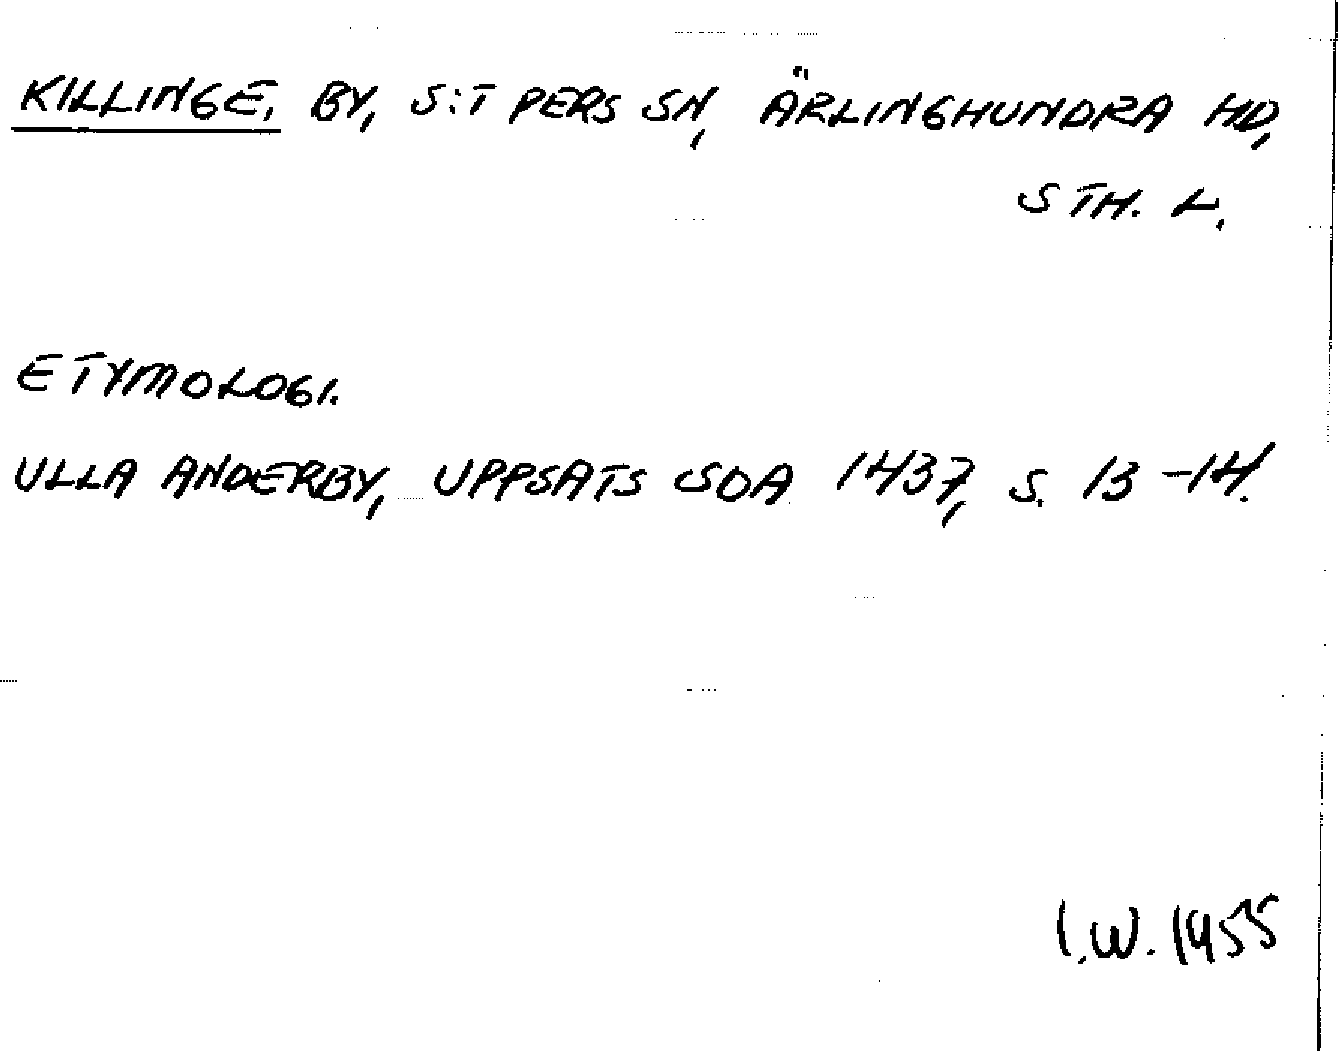 KILLINGE, BY, S:T PERS SN, ÄRLINGHUNDRA HD,
STH. L.
ETYMOLOGI.
ULLA ANDERBY, UPPSATS SOA 1437, S. 13-14.
I.W. 1955